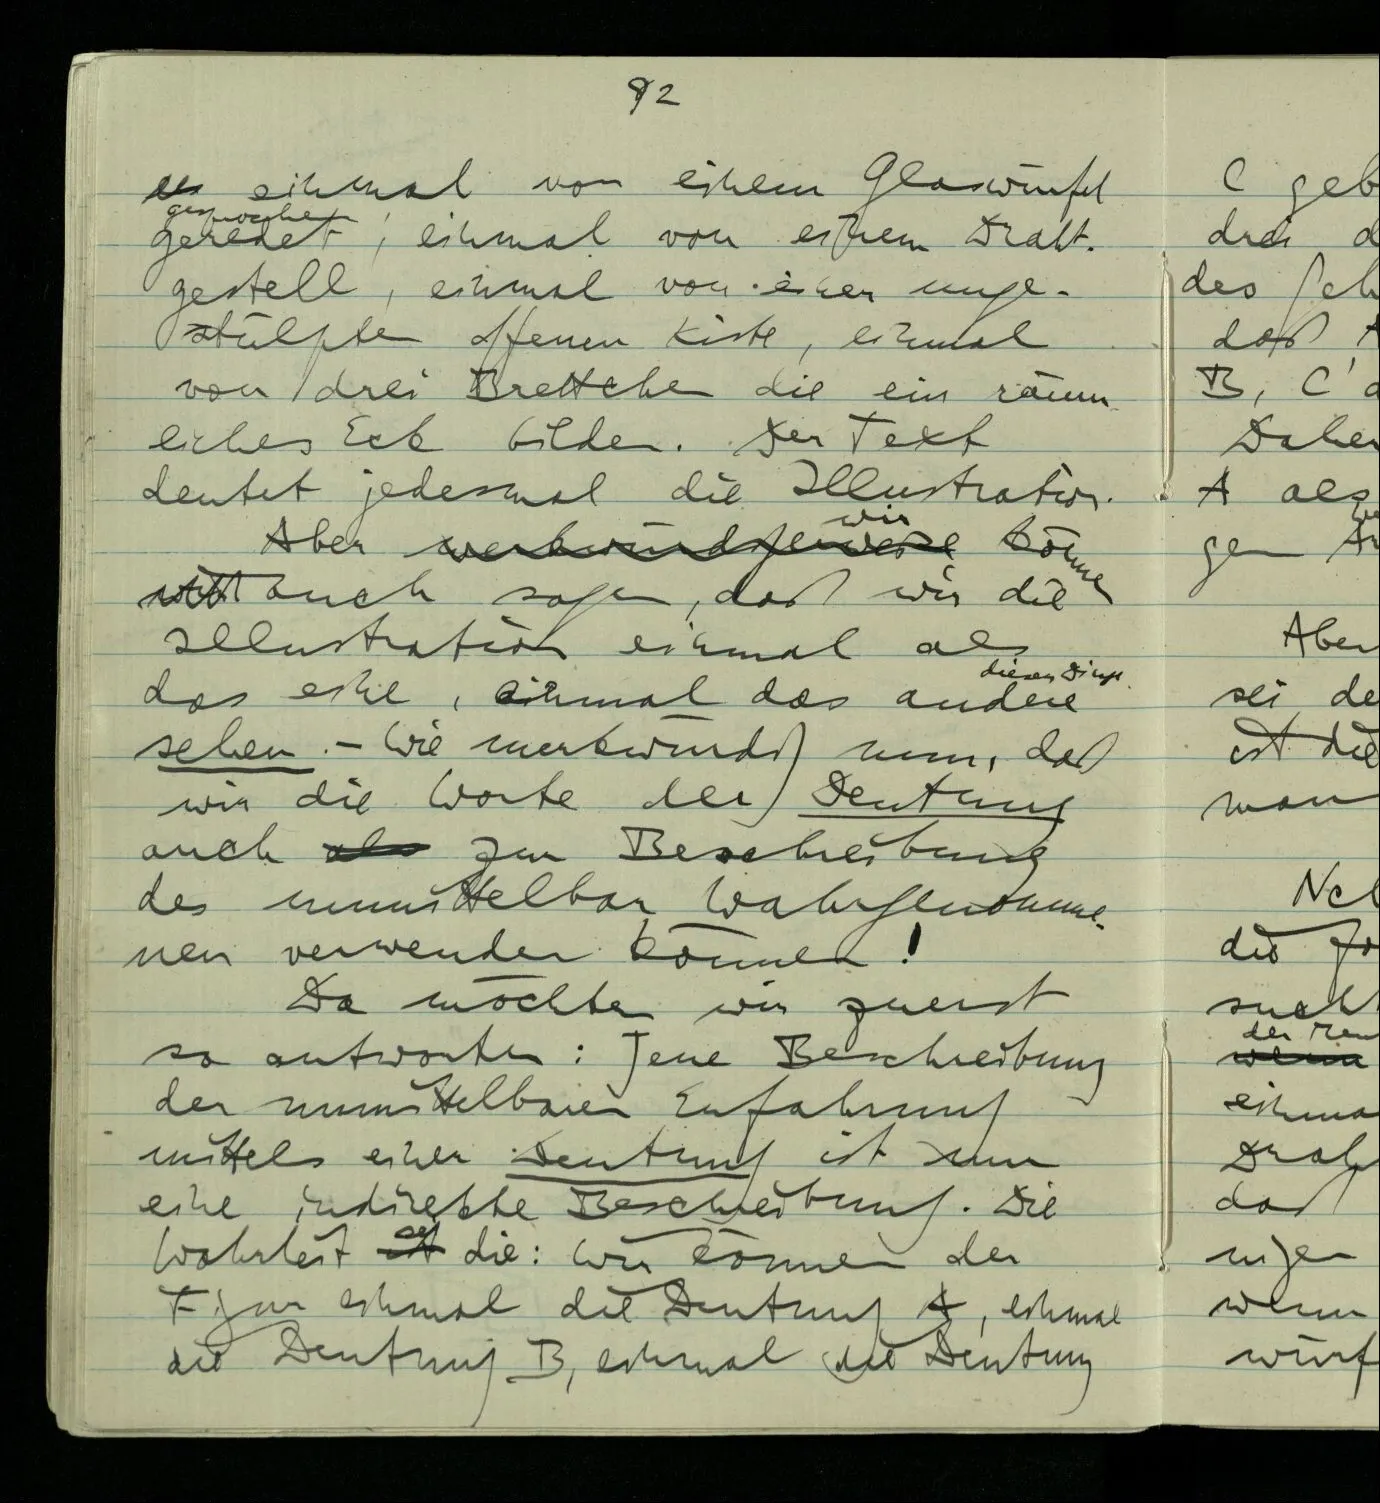 92
es einmal von einem Glaswürfel
gesprochen
geredet, einmal von einem Draht-
gestell, einmal von einer umge-
stülpten offenen Kiste, einmal
von drei Brettchen die ein räum
liches Eck bilden. Der Text
deutet jedesmal die Illustration.
wir
Aber merkwürdigerweise können
auch sagen, daß wir die
Illustration einmal als
dieser Dinge
das eine, einmal das andere
sehen. – Wie merkwürdig nun, daß
wir die Worte der Deutung
auch als zur Beschreibung
des unmittelbar Wahrgenomme-
nen verwenden können!
Da möchten wir zuerst
so antworten: Jene Beschreibung
der unmittelbaren Erfahrung
mittels einer Deutung ist nur
eine indirekte Beschreibung. Die
Wahrheit ist die: Wir können der
Figur einmal die Deutung A, einmal
die Deutung B, einmal die Deutung
C geb
drei d
des
daß A
B, C
Daher
A als
gen
Aber
sei de
ist die
man
die
such
wenn
einma
Drah
daß
wenn
würf